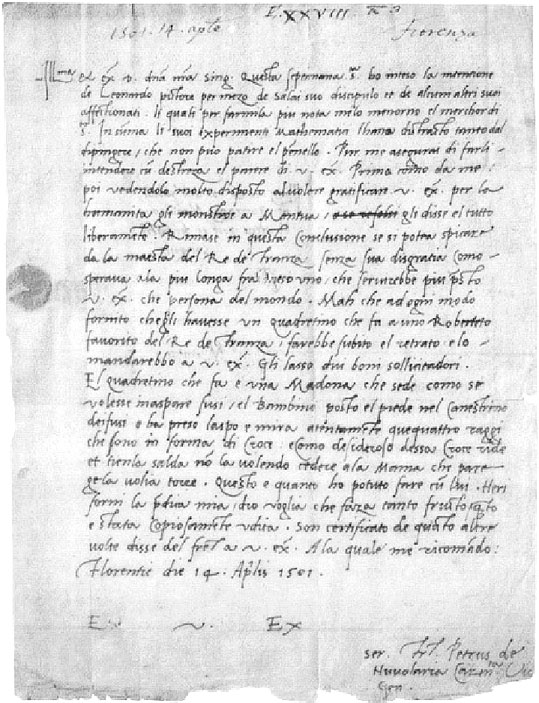 E. XXVIII. n° 3
1501. 14. aprile
fiorenza
Ill.ma et ex. v. dña mia sing. Questa septimana s.ta ho inteso la intentione
de Leonardo pictore per mezo de Salai suo discipulo et de alcuni altri suoi
affectionati: li quali per farmila piu nota me lo menorno el mercordi
s.to In súma li suoi experimenti mathematici l hano distracto tanto dal
dipingere, che non puo patire el penello. Pur me assegurai di farli
intendere cũ destreza el parere di v. ex. Prima como da me:
poi vedendolo molto disposto al volere gratificare v. ex. per la
humanita gli monstroe a Mantua, gli disse el tutto
liberamẽte. Rimase in questa conclusione se si potea spicare
da la maesta del Re de franza senza sua disgratia como
sperava ala piu longa fra meso uno, che servirebbe piu p̃sto
v. ex. che persona del mondo. Mah che ad ogni modo
fornito chegli havesse un quadretino che fa a uno Roberteto
favorito del Re de franza, farebbe subito el retrato e lo
mandarebbe a v. ex. Gli lasso dui boni sollicitadori.
El quadretino che fa e una Madona che sede como se
volesse inaspare fusi, el Bambino posto el piede nel canestrino
dei fusi e ha preso laspo e mira atentamẽte que quattro raggi
che sono in forma di Croce. e como desideroso dessa Croce ride
et tienla salda nõ la volendo cedere ala Mama che pare
gela volia torre. Questo e quanto ho potuto fare cũ lui. Heri
forni la p̃dica mia, dio voglia che faza tanto frutto q̃to
e stata copiosamẽte udita.
Ala quale me ricomãdo:
Florentie die 14. Ap̃lis 1501.
E. v. Ex
ser. Fr. Petrus de
Nuvolaria
Gen.